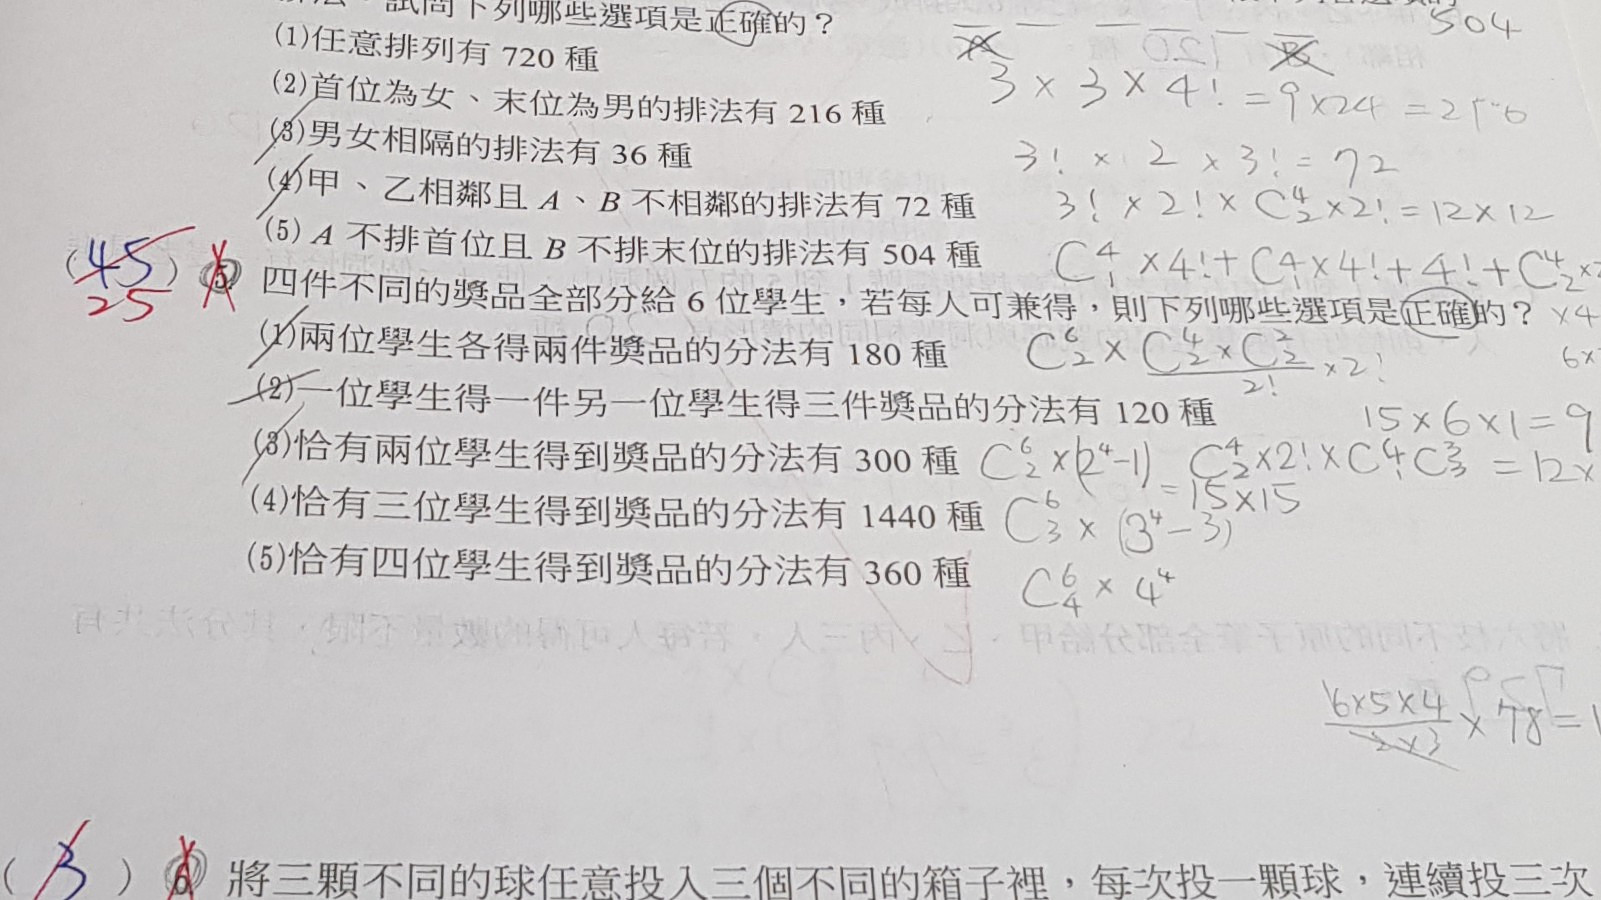 試問下列哪些選項是正確的？
504
(1)任意排列有 720 種
A B
(2)首位為女、末位為男的排法有 216 種
3 × 3 × 4! = 9×24 = 216
(3)男女相隔的排法有 36 種
3! × 2 × 3! = 72
(4)甲、乙相鄰且 A、B 不相鄰的排法有 72 種
3! × 2! × C⁴₂×2! = 12×12
(5) A 不排首位且 B 不排末位的排法有 504 種
(45) 25
5 四件不同的獎品全部分給 6 位學生，若每人可兼得，則下列哪些選項是正確的？
×4
(1)兩位學生各得兩件獎品的分法有 180 種
C⁶₂ × C⁴₂×C²₂ / 2! ×2!
6×
(2)一位學生得一件另一位學生得三件獎品的分法有 120 種
15×6×1=9
(3)恰有兩位學生得到獎品的分法有 300 種
C⁶₂ ×(2⁴-1) = 15×15
= 12×
(4)恰有三位學生得到獎品的分法有 1440 種
C⁶₃ × (3⁴-3)
(5)恰有四位學生得到獎品的分法有 360 種
C⁶₄ × 4⁴
6×5×4 / 2×3 × 78 = 1
(3) 6 將三顆不同的球任意投入三個不同的箱子裡，每次投一顆球，連續投三次